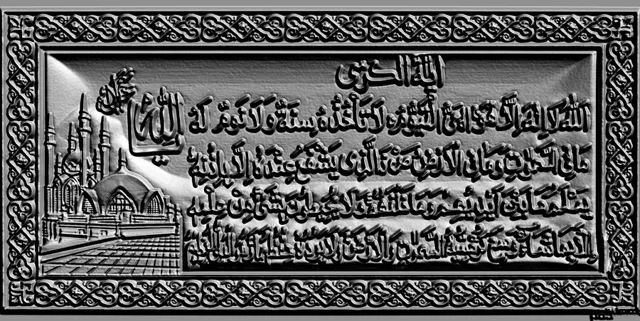 آية الكرسي
الله لا إله إلا هو الحي القيوم لا تأخذه سنة ولا نوم له
ما في السموات وما في الأرض من ذا الذي يشفع عنده إلا بإذنه
يعلم ما بين أيديهم وما خلفهم ولا يحيطون بشيء من علمه
إلا بما شاء وسع كرسيه السموات والأرض ولا يؤده حفظهما وهو العلي العظيم
الله
محمد